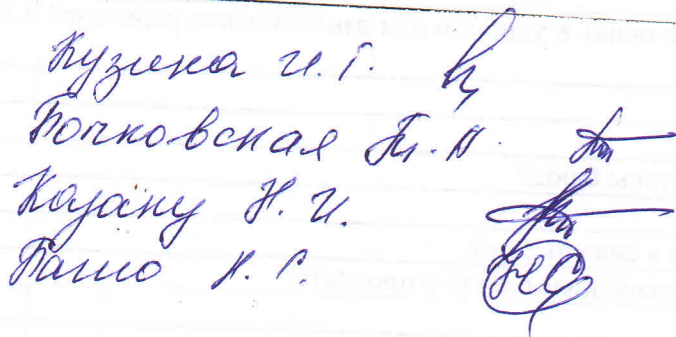 Кузина И.Г.
Бочковская Т.А.
Казаку Н.И.
Башо Н.С.